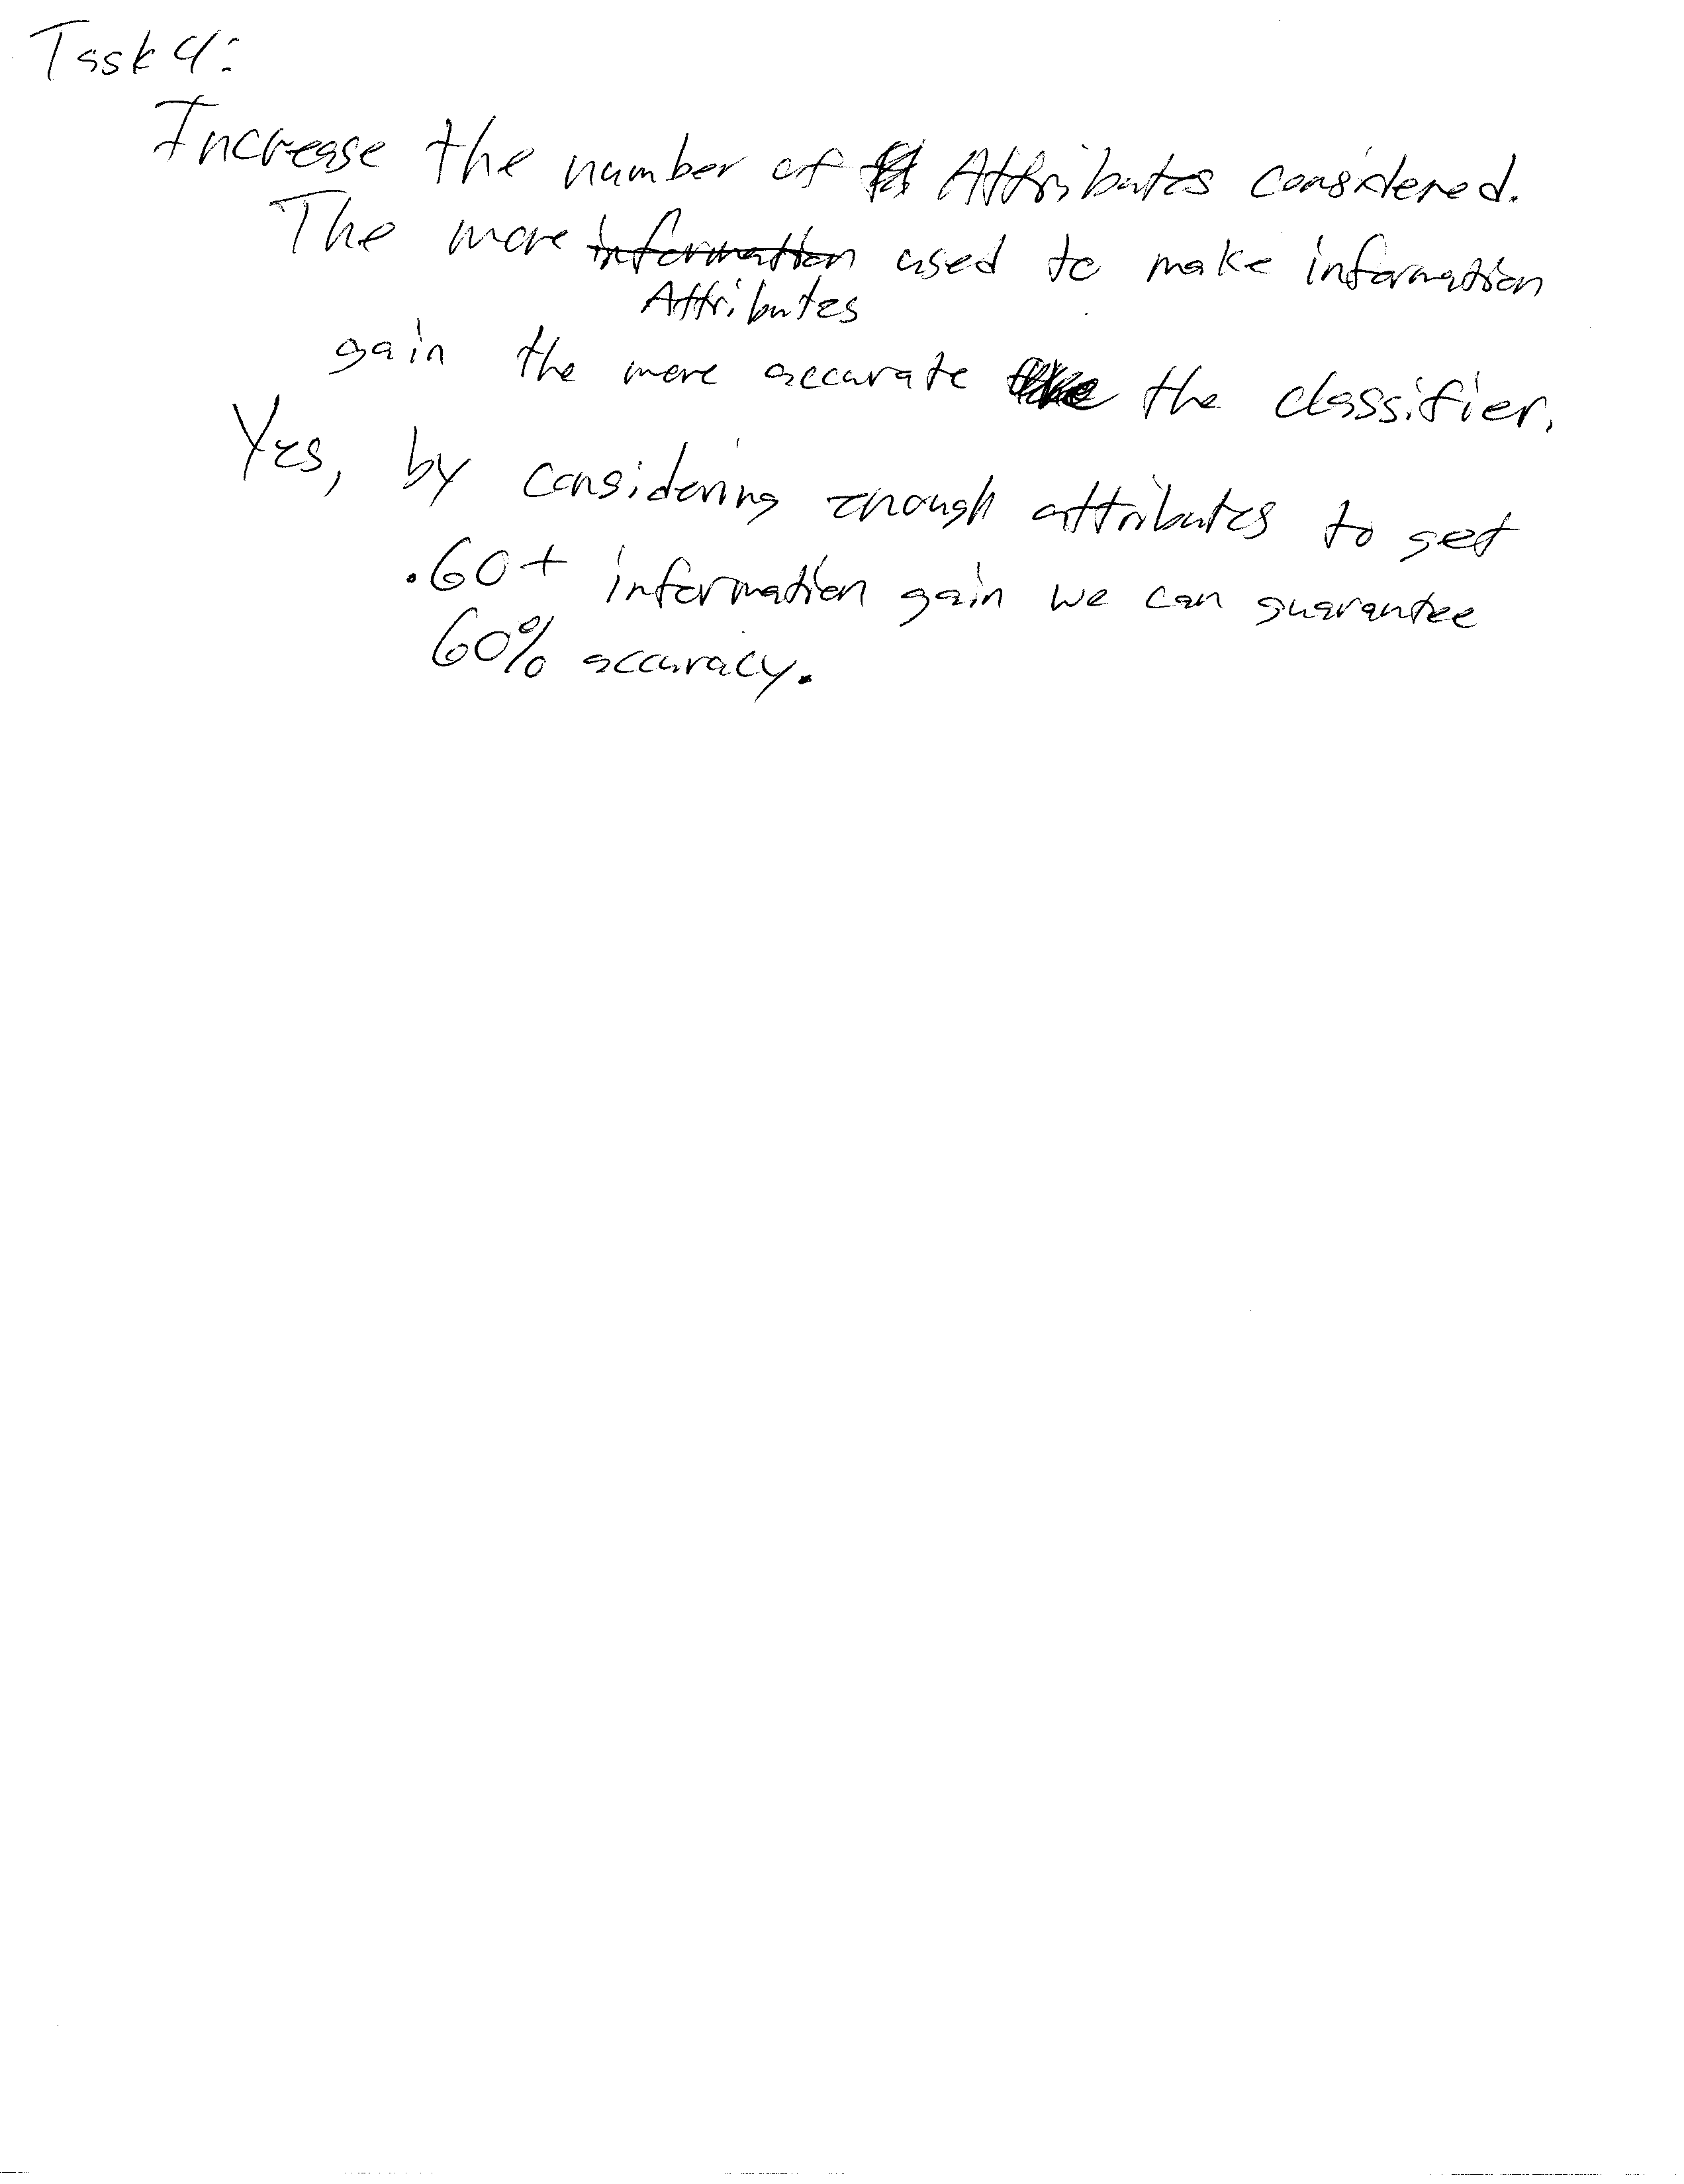 Task 4:
Increase the number of Attributes considered.
The more information used to make information
Attributes
gain the more accurate the classifier.
Yes, by considering enough attributes to get
.60+ information gain we can guarantee
60% accuracy.